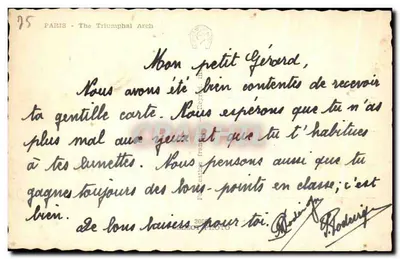 35
PARIS - The Triumphal Arch
Mon petit Gérard,
Nous avons été bien contentes de recevoir
ta gentille carte. Nous espérons que tu n'as
plus mal aux yeux et que tu t'habitues
à tes lunettes. Nous pensons aussi que tu
gagnes toujours des bons-points en classe; c'est
bien.
De bons baisers pour toi.